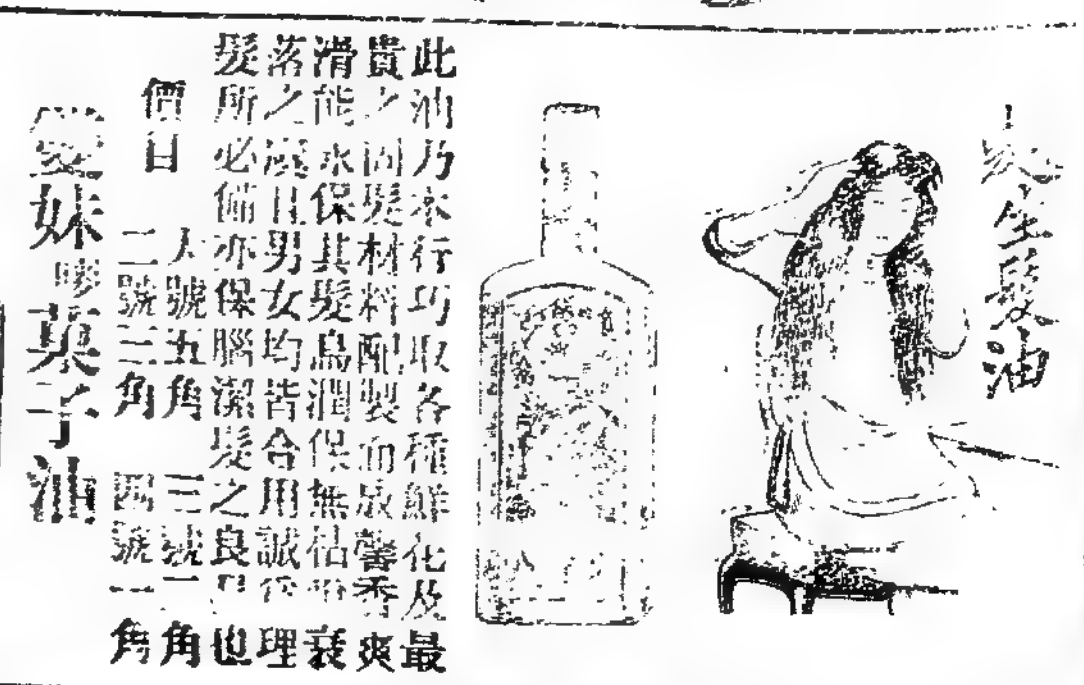 生髮油
此油乃本行巧取各種鮮化及最
貴之固髮材料配製而成馨香爽
滑能永保其髮烏潤保無枯衰
落之虞且男女均皆合用誠為理
髮所必備亦保腦潔髮之良品也
價目
大號五角 三號二角
二號三角 四號一角
雙妹嘜菓子油